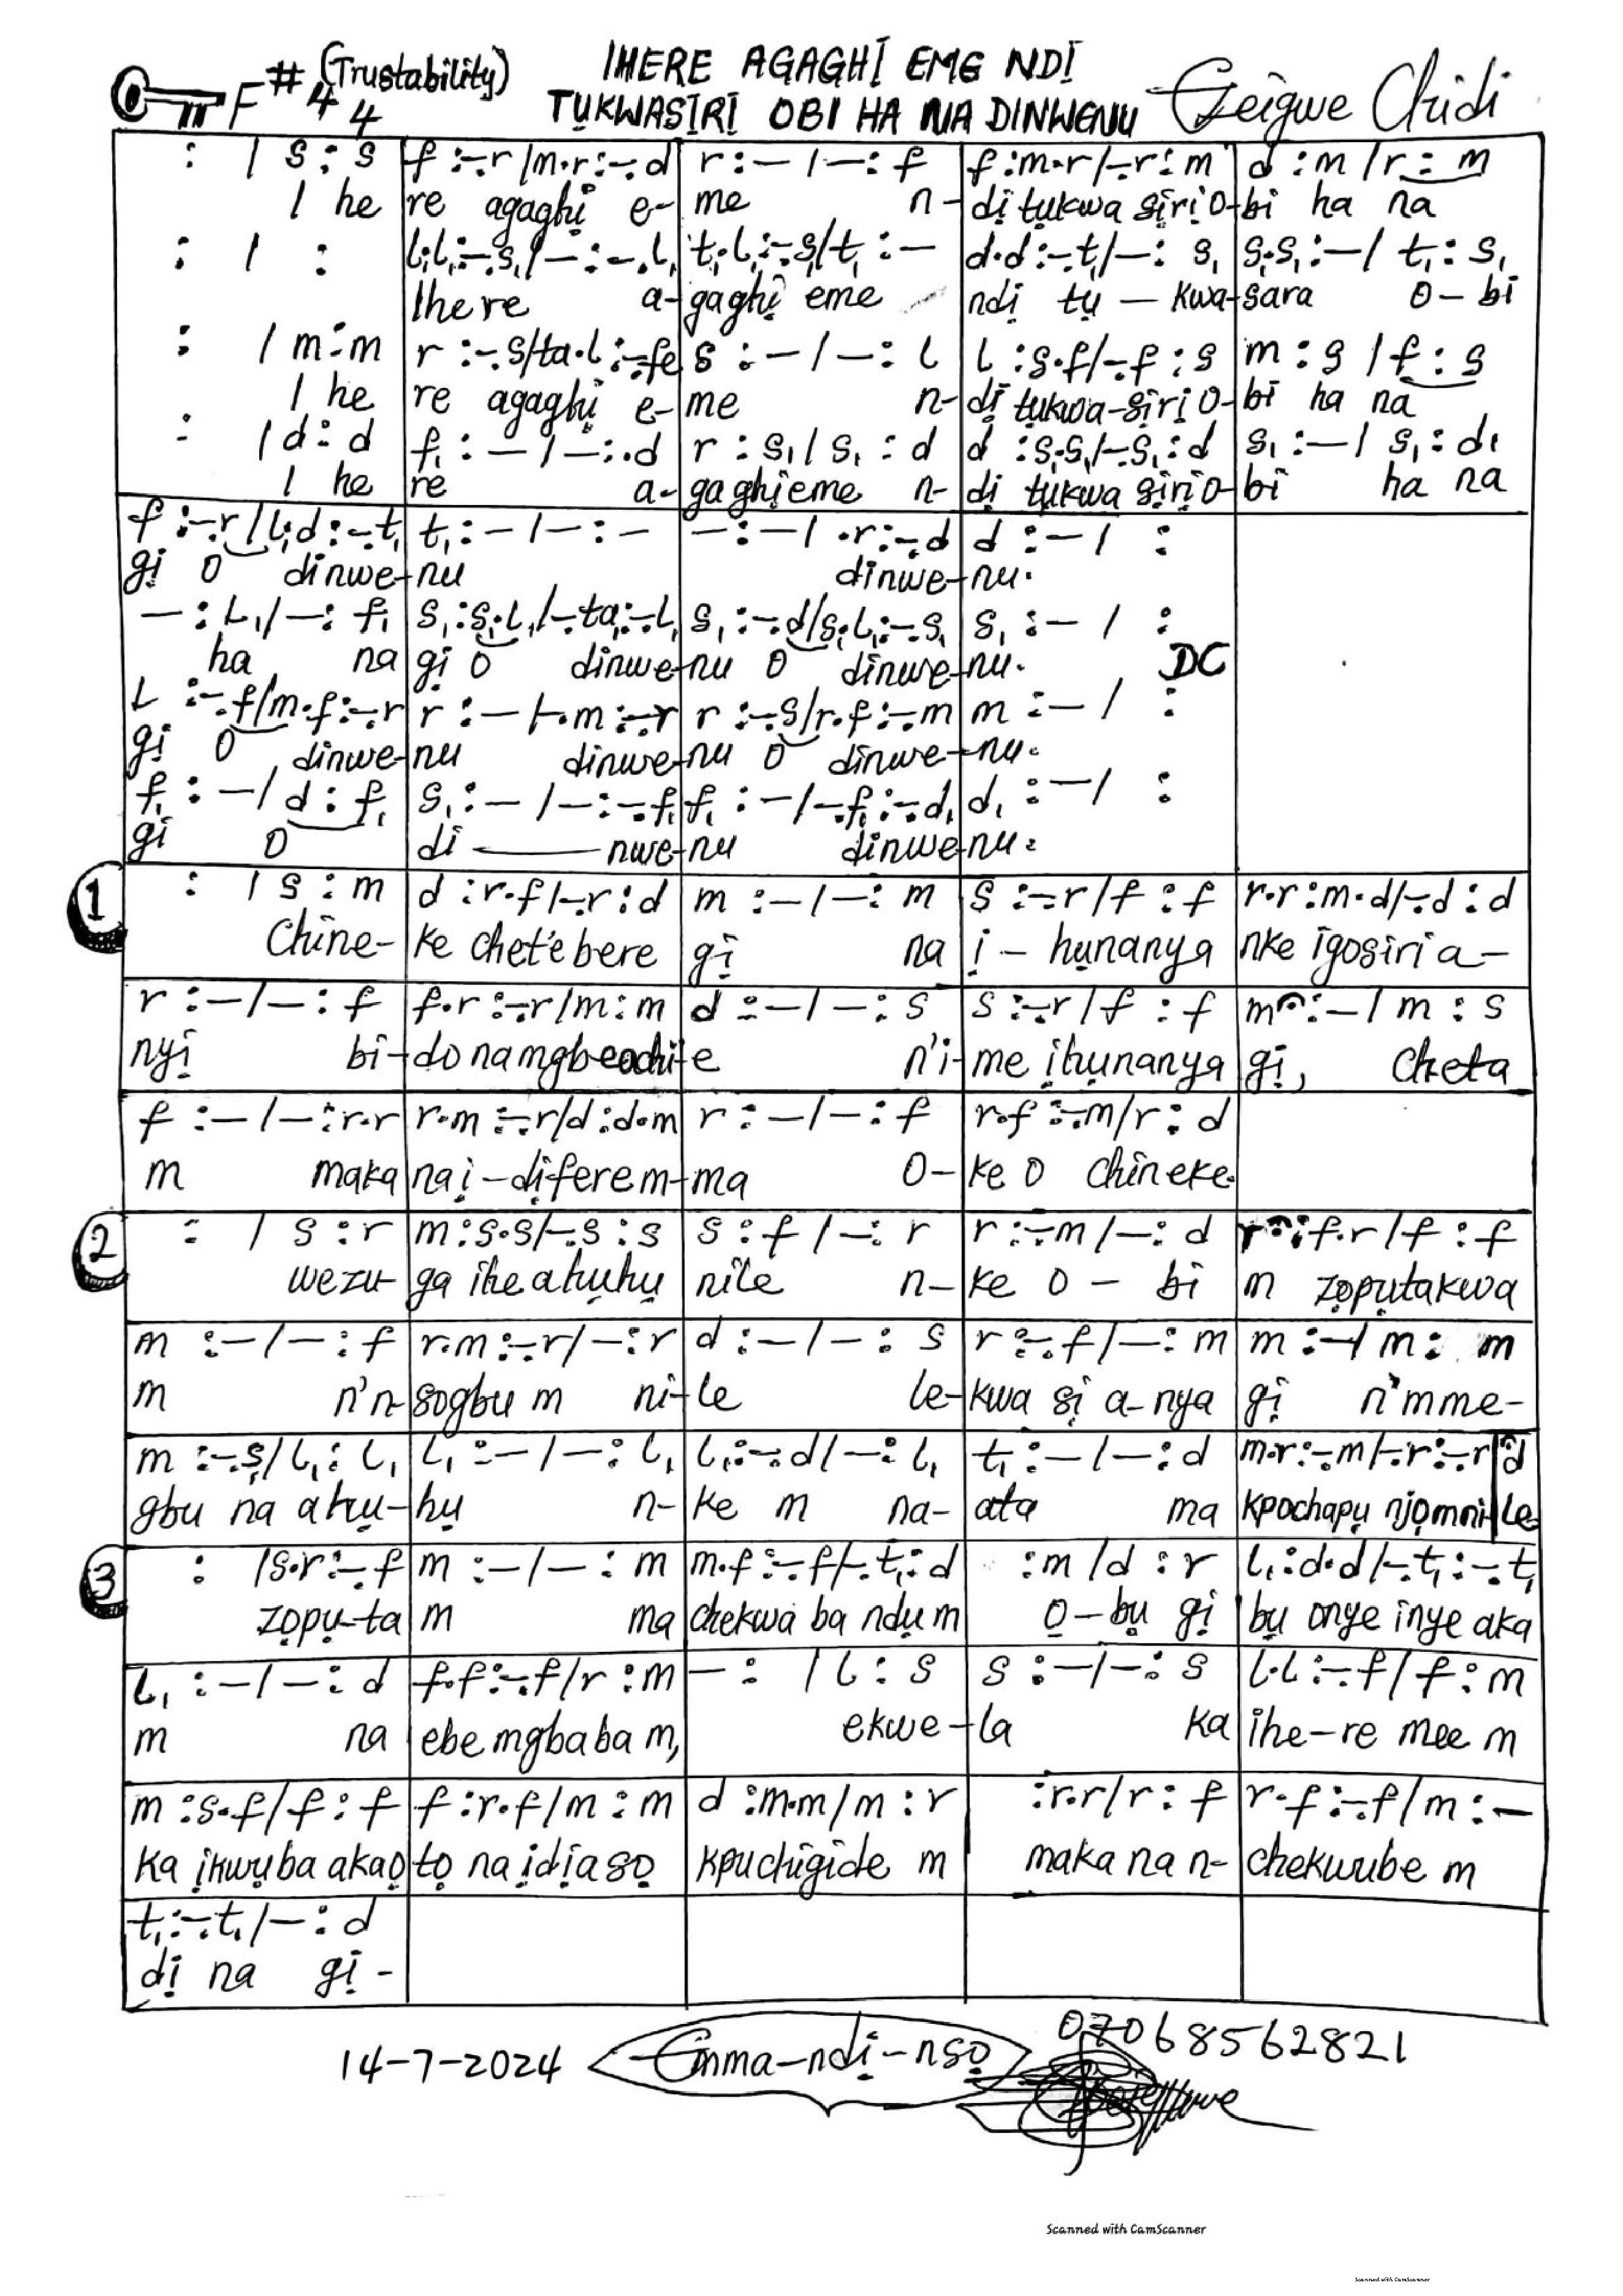 F# 4 4 (Trustability) IHERE AGAGHỊ EME NDỊ
TỤKWASỊRỊ OBI HA NA DINWENU Ezeigwe Chidi
: / s : s | f :-.r /m.r :-.d | r : – / – : f | f :m.r /-.r : m | d : m / r : m
I he re agaghị e- me n- dị tụkwa sịrị o- bi ha na
: / : | l₁.l₁:-.s₁/ – : -.l₁ | t₁.l₁:-.s₁/t₁ : – | d.d :-.t₁/ – : s₁ | s₁.s₁ : – / t₁ : s₁
Ihere a- gaghị eme ndị tụ – kwa- sara o – bi
: / m : m | r :-.s/ta.l :-.fe | s : – / – : l | l :s.f/-.f : s | m : s / f : s
I he re agaghị e- me n- dị tụkwa-sịrị o- bi ha na
: / d : d | f₁ : – / – :.d | r : s₁ / s₁ : d | d :s₁.s₁/-.s₁ : d | s₁ : – / s₁ : d₁
I he re a- gaghịeme n- dị tụkwa sịrị o- bi ha na
f :-.r / l₁.d :-.t₁ | t₁ : – / – : – | – : – / .r :-.d | d : – / :
gị O dinwe-nu dinwe-nu.
– : l₁ / – : f₁ | s₁ :s₁.l₁/-.ta₁:-.l₁ | s₁ :-.d/s₁.l₁:-.s₁ | s₁ : – / :
ha na gị O dinwe-nu O dinwe-nu. DC
l :-.f/m.f :-.r | r : – /-.m :-.r | r :-.s/r.f :-.m | m : – / :
gị O dinwe-nu dinwe-nu O dinwe-nu.
f₁ : – / d : f₁ | s₁ : – / – :-.f₁ | f₁ : – /-.f₁ :-.d₁ | d₁ : – / :
gị O di nwe-nu dinwenu.
1 : / s : m | d :r.f /-.r : d | m : – / – : m | s :-.r / f : f | r.r :m.d/-.d : d
Chine- ke chet'ebere gị na ị – hụnanya nke igosiri a-
r : – / – : f | f.r :-.r / m : m | d : – / – : s | s :-.r / f : f | m : – / m : s
nyị bi-do na mgbe ochi-e n'i-me ịhụnanya gị, cheta
f : – / – :r.r | r.m :-.r/d :d.m | r : – / – : f | r.f :-.m/r : d
m maka naị-dịferem-ma O-ke O chineke.
2 : / s : r | m :s.s/-.s : s | s : f / – : r | r :-.m / – : d | r :f.r / f : f
wezu- ga ihe ahụhụ nile n- ke o – bi m zọpụtakwa
m : – / – : f | r.m :-.r/ – : r | d : – / – : s | r :-.f / – : m | m : – / m : m
m n'n-sogbu m ni-le le-kwa sị a-nya gị n'mme-
m :-.s₁/ l₁ : l₁ | l₁ : – / – : l₁ | l₁ :-.d/ – : l₁ | t₁ : – / – : d | m.r :-.m/-.r :-.r | d
gbu na ahụ-hụ n- ke m na-ata ma kpochapụ njọmni-le
3 : /s.r :-.f | m : – / – : m | m.f :-.f/-.t₁ : d | : m / d : r | l₁ :d.d /-.t₁ :-.t₁
zọpụ-ta m ma chekwa ba ndụ m ọ-bụ gị bụ onye inye aka
l₁ : – / – : d | f.f :-.f/r : m | – : / l : s | s : – / – : s | l.l :-.f/ f : m
m na ebe mgbaba m, ekwe-la ka ihe-re mee m
m :s.f/f : f | f :r.f/m : m | d :m.m/m : r | :r.r/r : f | r.f :-.f/m : –
ka ịkwụba akaọ tọ na ịdịasọ kpuchigide m maka na n- chekwube m
t₁ :-.t₁/ – : d
dị na gị -
14-7-2024 Emma-ndi-nsọ 07068562821
Scanned with CamScanner
Scanned with CamScanner